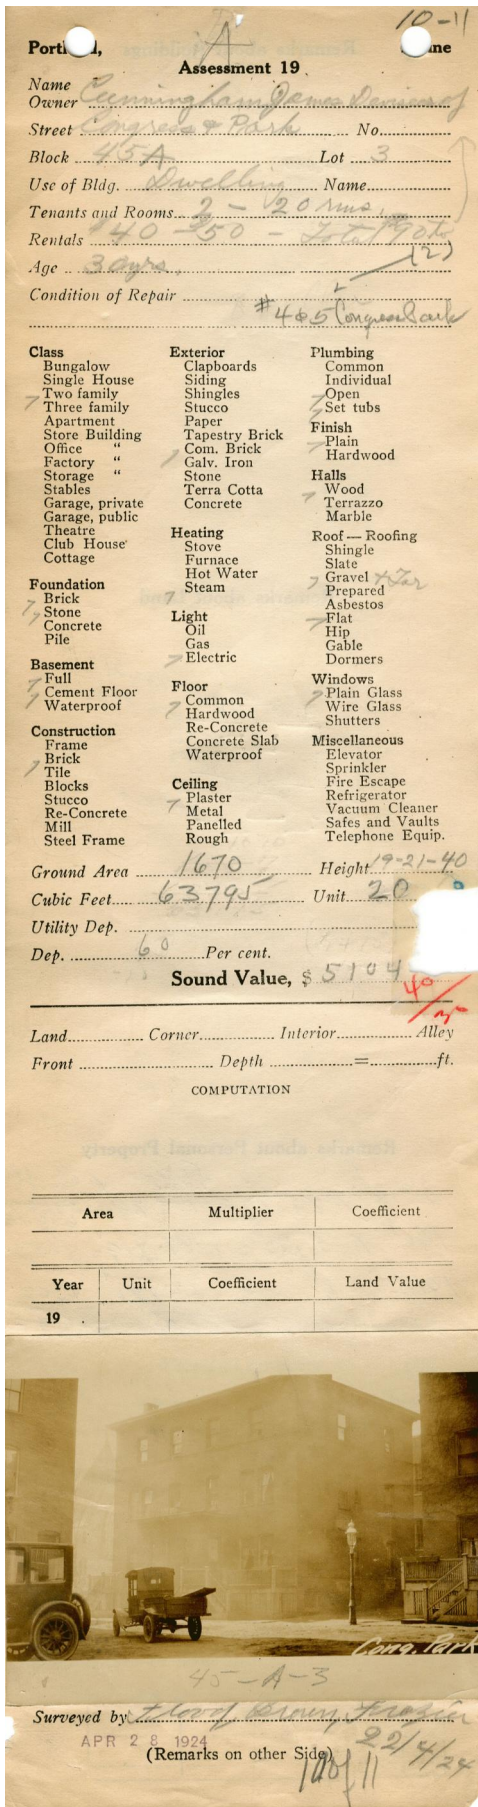 10-11
Portland, Maine
Assessment 19
Name
Owner Cunningham James Devisees of
Street Congress & Park No.
Block 45A Lot 3
Use of Bldg. Dwelling Name
Tenants and Rooms 2 - 20 rms.
Rentals $40 - $50 - Total $90 to
(2)
Age 30 yrs.
Condition of Repair
#4 & 5 Congress Park
Class
Bungalow
Single House
Two family
Three family
Apartment
Store Building
Office "
Factory "
Storage "
Stables
Garage, private
Garage, public
Theatre
Club House
Cottage
Foundation
Brick
Stone
Concrete
Pile
Basement
Full
Cement Floor
Waterproof
Construction
Frame
Brick
Tile
Blocks
Stucco
Re-Concrete
Mill
Steel Frame
Exterior
Clapboards
Siding
Shingles
Stucco
Paper
Tapestry Brick
Com. Brick
Galv. Iron
Stone
Terra Cotta
Concrete
Heating
Stove
Furnace
Hot Water
Steam
Light
Oil
Gas
Electric
Floor
Common
Hardwood
Re-Concrete
Concrete Slab
Waterproof
Ceiling
Plaster
Metal
Panelled
Rough
Plumbing
Common
Individual
Open
Set tubs
Finish
Plain
Hardwood
Halls
Wood
Terrazzo
Marble
Roof — Roofing
Shingle
Slate
Gravel & Tar
Prepared
Asbestos
Flat
Hip
Gable
Dormers
Windows
Plain Glass
Wire Glass
Shutters
Miscellaneous
Elevator
Sprinkler
Fire Escape
Refrigerator
Vacuum Cleaner
Safes and Vaults
Telephone Equip.
Ground Area 1670 Height 19-21-40
Cubic Feet 63795 Unit 20
Utility Dep.
Dep. 60 Per cent.
Sound Value, $ 5104
40
Land Corner Interior Alley
Front Depth = ft.
COMPUTATION
Area Multiplier Coefficient
Year Unit Coefficient Land Value
19 .
Cong. Park
45-A-3
Surveyed by Flood Brown Frazier
APR 28 1924
22/4/24
(Remarks on other Side)
10 of 11